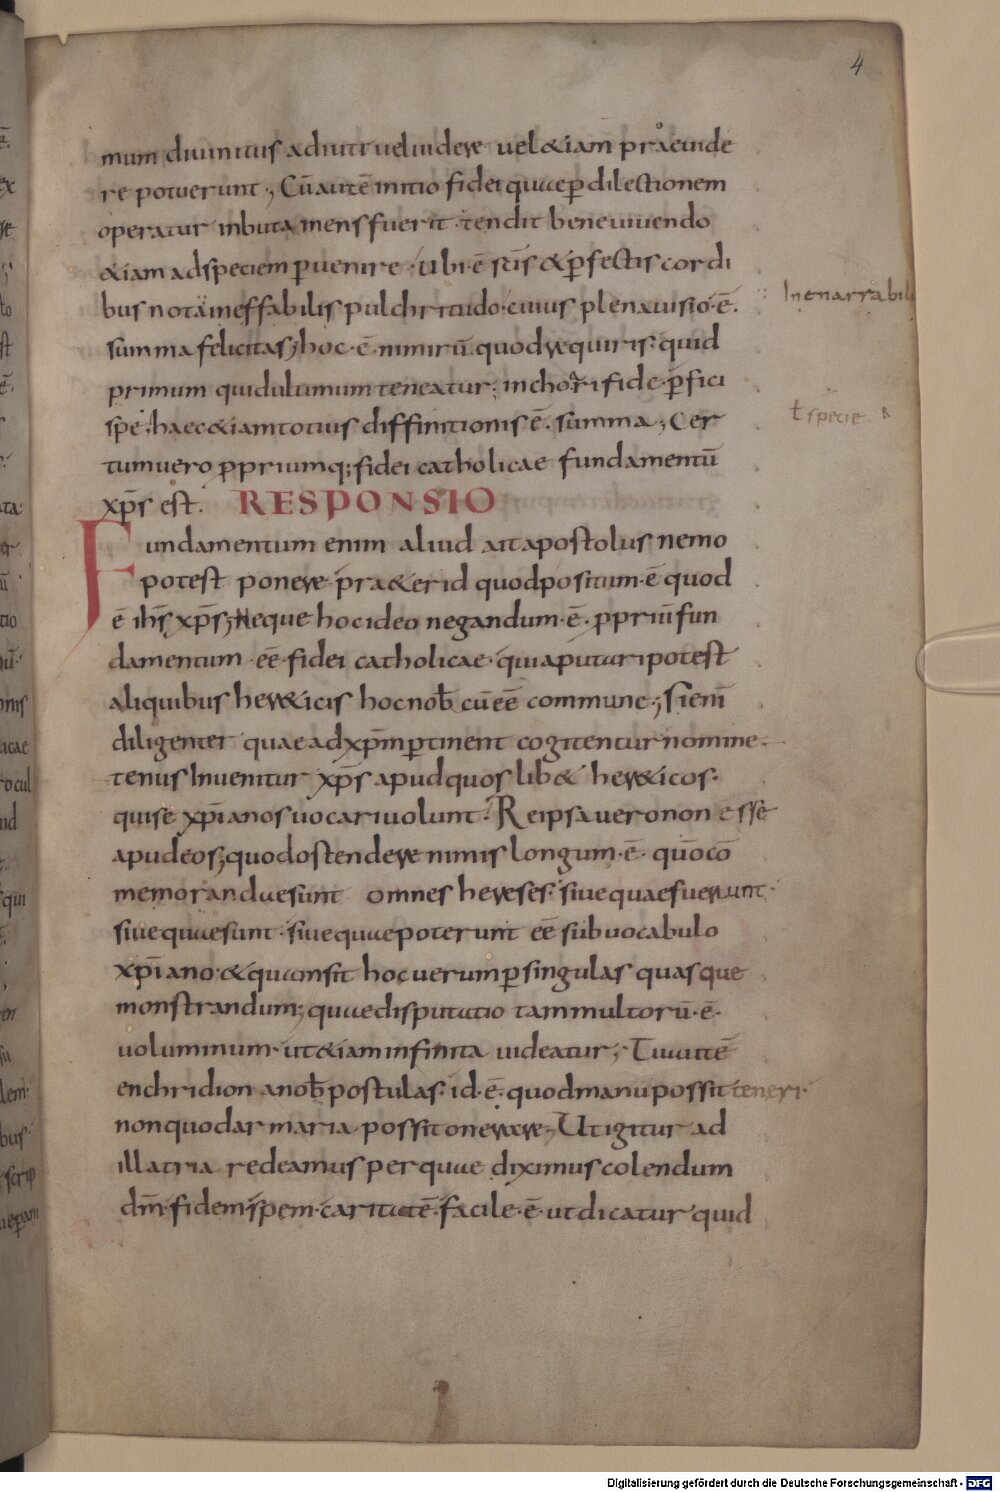 4
mum diuinitus adiuti uel uidere uel &iam praeuide
re potuerunt; Cu̅ aute̅ initio fidei quae p̲ dilectionem
operatur inbuta mens fuerit · tendit bene uiuendo
&iam ad speciem p̲uenire · Ubi · e̅ sc̅is & p̲fectis cordi
bus nota ineffabilis pulchritudo · cuius plena uisio · e̅ ·
Inenarrabil
summa felicitas; hoc · e̅ · nimiru̅ quod requiris · quid
primum quid ultimum teneatur; inchoari fide · p̲fici
spe · haec &iam totius diffinitionis e̅ · summa; Cer
ł specie ·
tum uero p̲priumq; fidei catholicae fundamentu̅
xp̅s est . RESPONSIO
Fundamentum enim aliud ait apostolus nemo
potest ponere · pra&er id quod positum · e̅ quod
e̅ ih̅s xp̅s; Neque hoc ideo negandum · e̅ · p̲priu̅ fun
damentum · ee̅ · fidei catholicae · quia putari potest
aliquibus her&icis hoc nob̅ cu̅ ee̅ commune; Si eni̅
diligenter quae ad xp̅m p̲tinent cogitentur nomine ·
tenus Inuenitur xp̅s apud quos lib& her&icos ·
qui se xp̅ianos uocari uolunt · Re ipsa uero non esse
apud eos; quod ostendere nimis longum · e̅ · quo̅ co̅
memorandae sunt omnes hereses · siue quae fuerunt ·
siue quae sunt · siue quae poterunt ee̅ sub uocabulo
xp̅iano · & quam sit hoc uerum p̲ singulas quasque
monstrandum; quae disputatio tam multoru̅ · e̅ ·
uoluminum · ut &iam infinita uideatur; Tu aute̅
enchridion a nob̅ postulas · id · e̅ · quod manu possit teneri ·
non quod armaria possit onerare; Ut igitur ad
illa tria redeamus per quae diximus colendum
dm̅ · fidem · spem · caritate̅ · facile · e̅ · ut dicatur quid
Digitalisierung gefördert durch die Deutsche Forschungsgemeinschaft - DFG